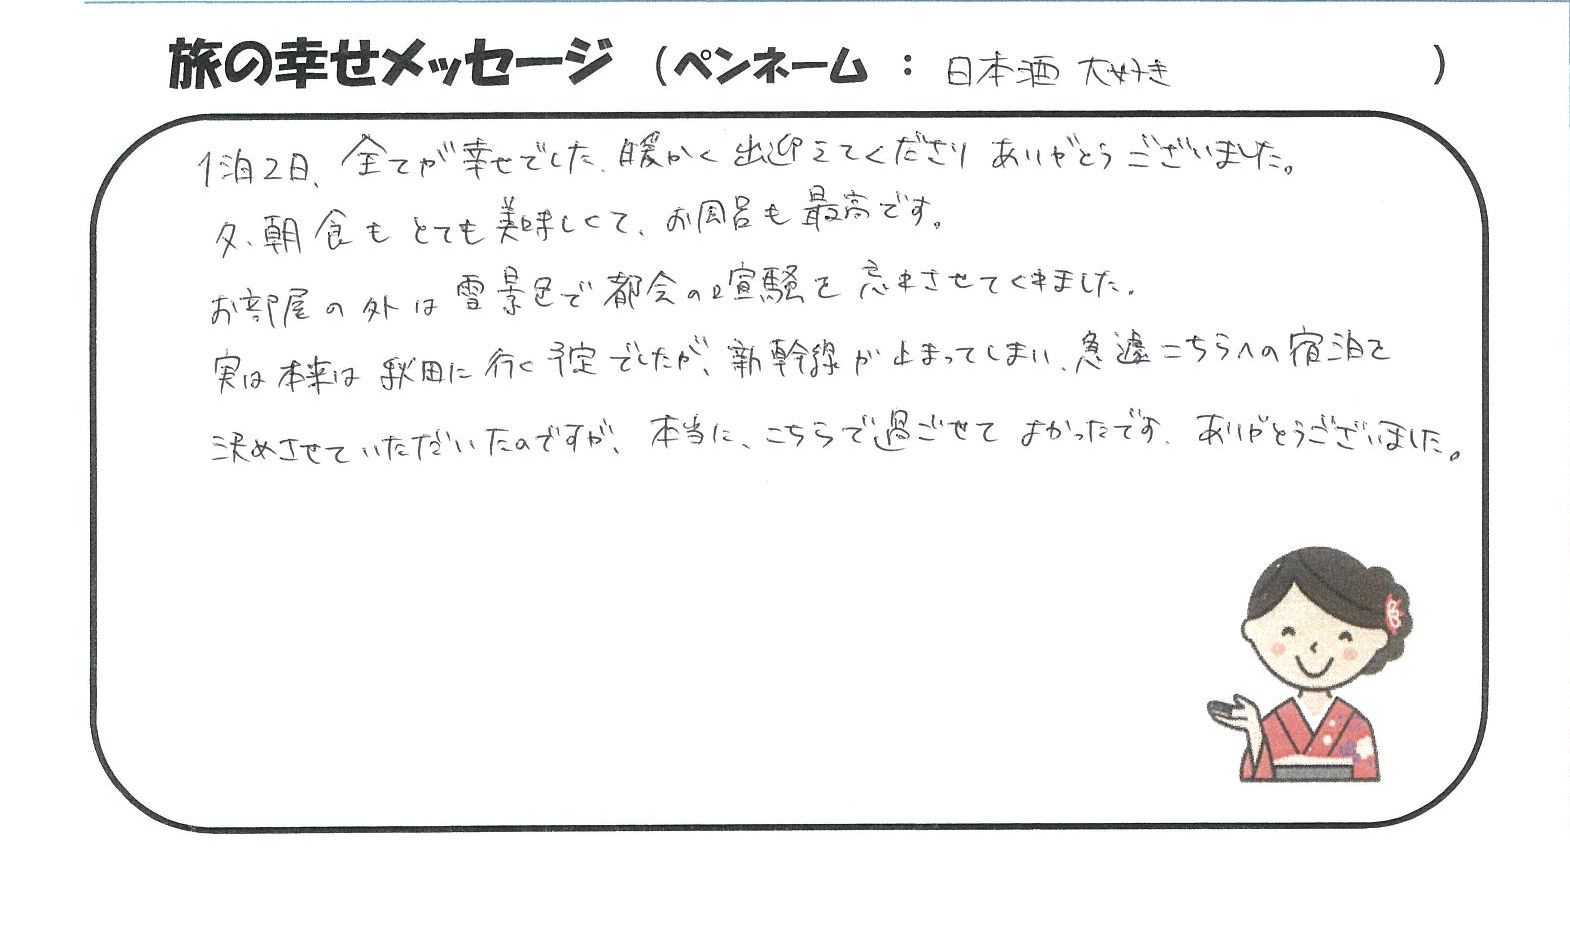 旅の幸せメッセージ （ペンネーム ： 日本酒 大好き ）
1泊2日、全てが幸せでした。暖かく出迎えてくださり ありがとうございました。
夕、朝食も とても美味しくて、お風呂も最高です。
お部屋の外は 雪景色で都会の喧騒を 忘れさせてくれました。
実は本来は 秋田に行く予定でしたが、新幹線が止まってしまい、急遽こちらへの宿泊を
決めさせていただいたのですが、本当に、こちらで過ごせて よかったです。ありがとうございました。